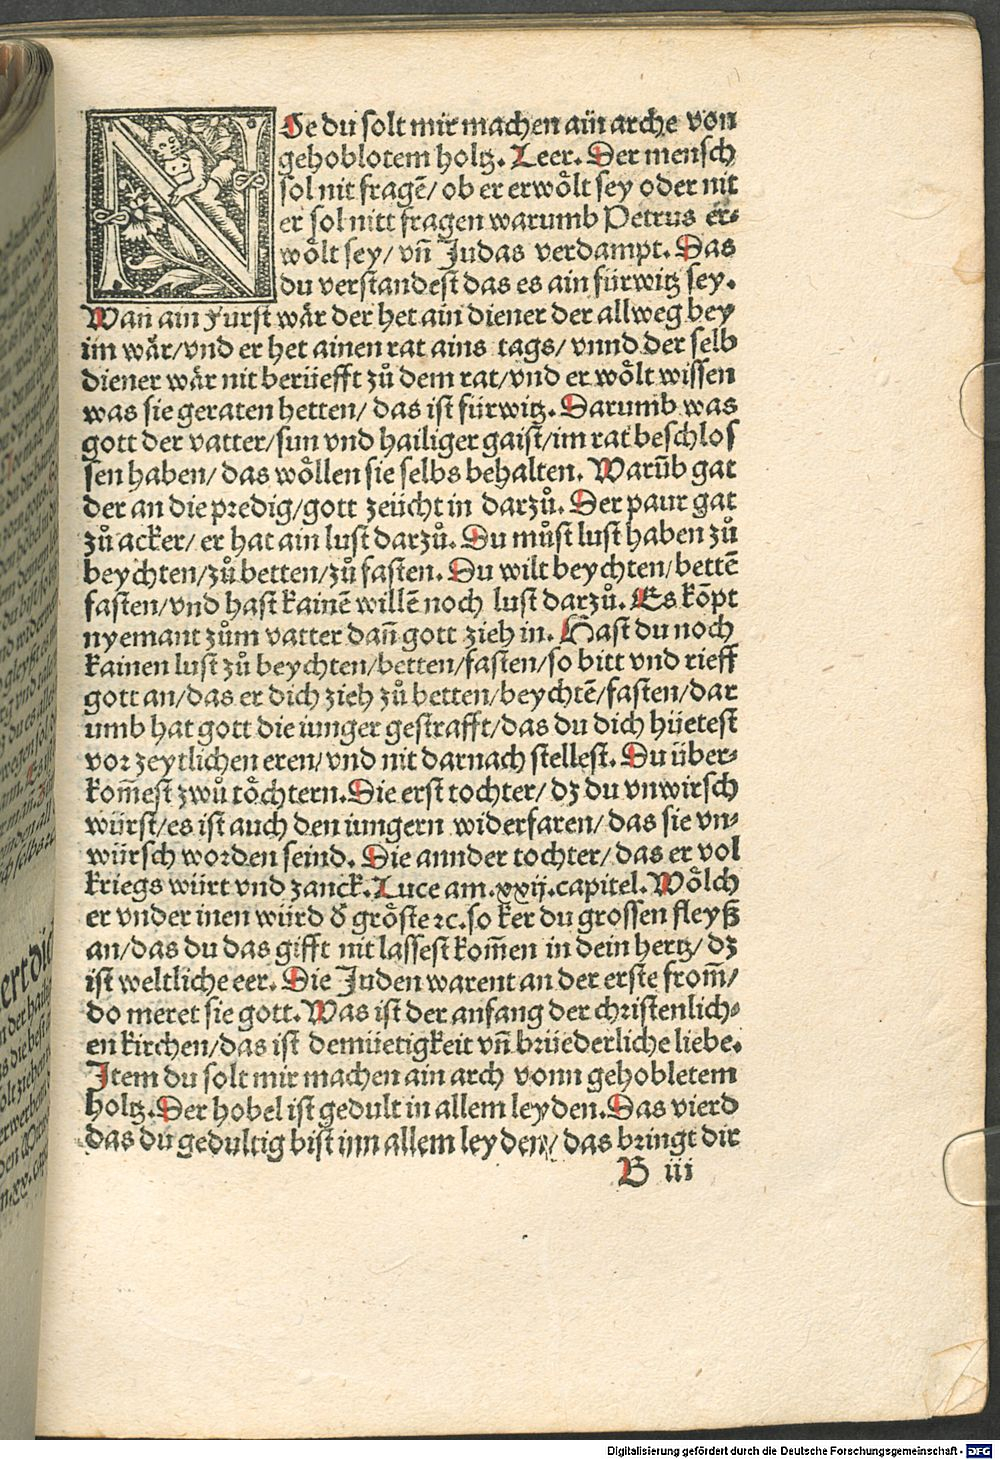 NOe du solt mir machen ain arche von
gehoblotem holtz. Leer. Der mensch
sol nit fragē/ ob er erwoͤlt sey oder nit
er sol nitt fragen warumb Petrus er⸗
woͤlt sey/ vn̄ Judas verdampt. Das
du verstandest das es ain fürwitz sey.
Wan̄ ain Furst waͤr der het ain diener der allweg bey
im waͤr/vnd er het ainen rat ains tags/ vnnd der selb
diener waͤr nit berüefft zuͦ dem rat/vnd er woͤlt wissen
was sie geraten hetten/ das ist fürwitz. Darumb was
gott der vatter/sun vnd hailiger gaist/im rat beschlos
sen haben/ das woͤllen sie selbs behalten. Warūb gat
der an die predig/gott zeücht in darzuͦ. Der paur gat
zuͦ acker/ er hat ain lust darzuͦ. Du muͦst lust haben zuͦ
beychten/zuͦ betten/zuͦ fasten. Du wilt beychten/bettē
fasten/vnd hast kainē willē noch lust darzuͦ. Es kōpt
nyemant zuͦm vatter dan̄ gott zieh in. Hast du noch
kainen lust zuͦ beychten/betten/fasten/so bitt vnd rieff
gott an/das er dich zieh zuͦ betten/beychtē/fasten/dar
umb hat gott die iunger gestrafft/das du dich hüetest
vor zeytlichen eren/vnd nit darnach stellest. Du über⸗
kom̄est zwuͦ toͤchtern. Die erst tochter/ dz du vnwirsch
würst/es ist auch den iungern widerfaren/ das sie vn⸗
würsch worden seind. Die annder tochter/ das er vol
kriegs würt vnd zanck. Luce am.xxij.capitel. Woͤlch
er vnder inen würd d̄ groͤste ⁊c. so ker du grossen fleyß
an/das du das gifft nit lassest kom̄en in dein hertz/ dz
ist weltliche eer. Die Juden warent an der erste from̄/
do meret sie gott. Was ist der anfang der christenlich⸗
en kirchen/das ist demüetigkeit vn̄ brüederliche liebe.
Item du solt mir machen ain arch vonn gehobletem
holtz. Der hobel ist gedult in allem leyden. Das vierd
das du gedultig bist inn allem leyden/ das bringt dir
B iii
Digitalisierung gefördert durch die Deutsche Forschungsgemeinschaft - DFG